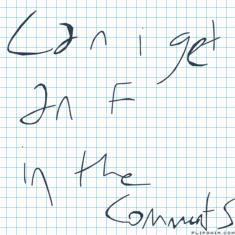 Can i get
an F
in the
Comments
FLIPANIM.COM